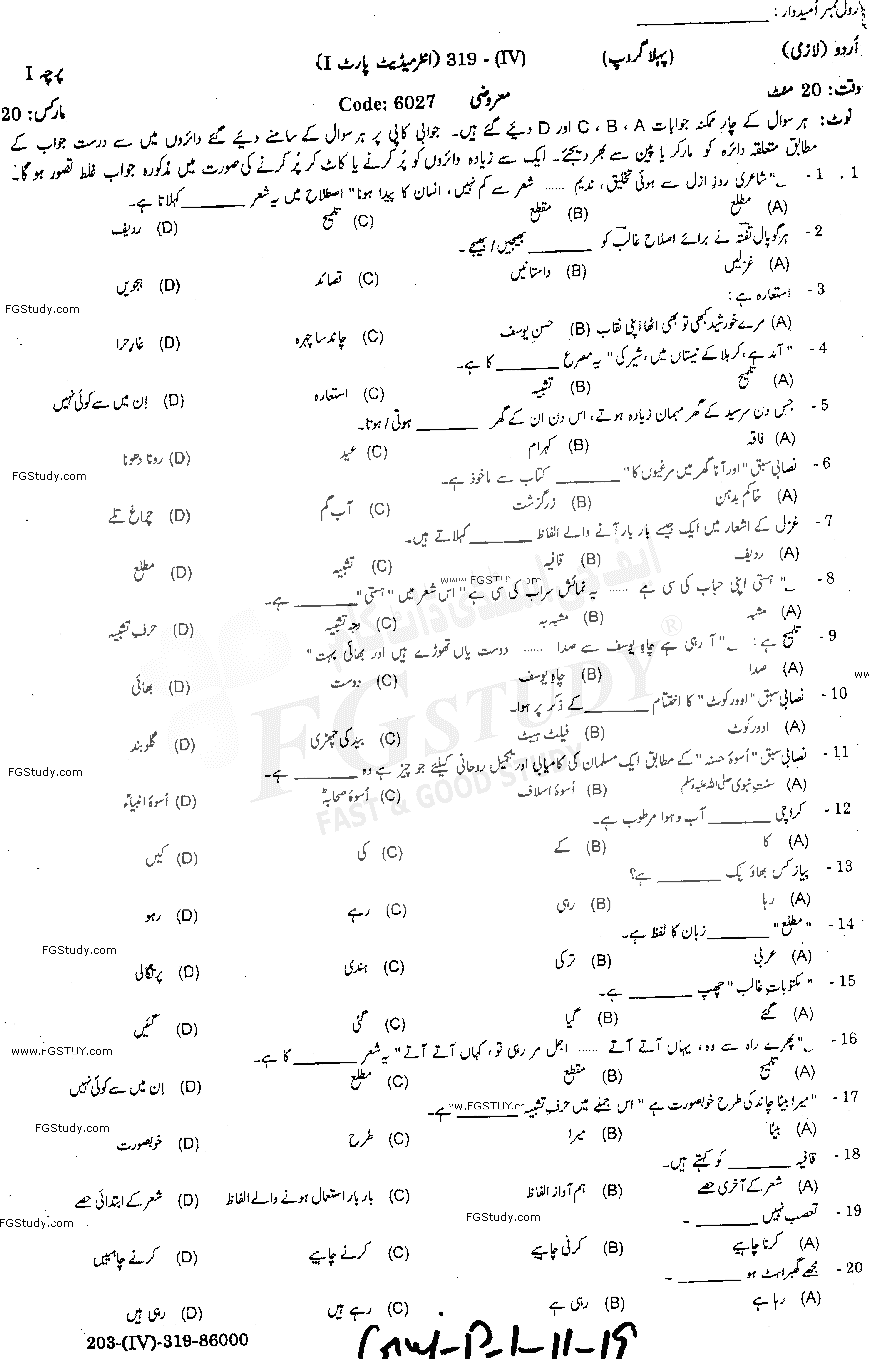 رول نمبر اُمیدوار : ____________
اُردو (لازمی) (پہلا گروپ) 319 - (IV) (انٹرمیڈیٹ پارٹ I) پرچہ I
وقت: 20 منٹ معروضی Code: 6027 مارکس: 20
نوٹ: ہر سوال کے چار ممکنہ جوابات A ، B ، C اور D دیئے گئے ہیں۔ جوابی کاپی پر ہر سوال کے سامنے دیئے گئے دائروں میں سے درست جواب کے
مطابق متعلقہ دائرہ کو مارکر یا پین سے بھر دیجئے۔ ایک سے زیادہ دائروں کو پُر کرنے یا کاٹ کر پُر کرنے کی صورت میں مذکورہ جواب غلط تصور ہو گا۔
1 . 1 - "شاعری روزِ ازل سے ہوئی تخلیق، ندیم ...... شعر سے کم نہیں، انسان کا پیدا ہونا" اصطلاح میں یہ شعر ________ کہلاتا ہے۔
(A) مطلع (B) مقطع (C) تلمیح (D) ردیف
2 - ہرگوپال تفتہ نے برائے اصلاح غالب کو ________ بھیجیں/بھیجے۔
(A) غزلیں (B) داستانیں (C) قصائد (D) ہجویں
FGStudy.com
3 - استعارہ ہے :
(A) مرے خورشید کبھی تو بھی اٹھا اپنی نقاب (B) حسن یوسف (C) چاند سا چہرہ (D) غارِ حرا
4 - "آمد ہے، کربلا کے نیستاں میں، شیر کی" یہ مصرع ________ کا ہے۔
(A) تلمیح (B) تشبیہ (C) استعارہ (D) اِن میں سے کوئی نہیں
5 - جس دن سرسید کے گھر مہمان زیادہ ہوتے، اس دن ان کے گھر ________ ہوتی/ہوتا۔
(A) فاقہ (B) کہرام (C) عید (D) رونا دھونا
FGStudy.com
6 - نصابی سبق "اور آنا گھر میں مرغیوں کا" ________ کتاب سے ماخوذ ہے۔
(A) خاکم بدہن (B) زرگزشت (C) آب گم (D) چراغ تلے
7 - غزل کے اشعار میں ایک جیسے بار بار آنے والے الفاظ ________ کہلاتے ہیں۔
(A) ردیف (B) قافیہ (C) تشبیہ (D) مطلع
8 - "ہستی اپنی حباب کی سی ہے ...... یہ نمائش سراب کی سی ہے" اس شعر میں "ہستی" ________ ہے۔
(A) مشبہ (B) مشبہ بہ (C) وجہ تشبیہ (D) حرف تشبیہ
9 - تلمیح ہے : "آ رہی ہے چاہِ یوسف سے صدا ...... دوست یاں تھوڑے ہیں اور بھائی بہت"
(A) صدا (B) چاہِ یوسف (C) دوست (D) بھائی
FGSTUDY ®
FAST & GOOD STUDY
10 - نصابی سبق "اوورکوٹ" کا اختتام ________ کے ذکر پر ہوا۔
(A) اوورکوٹ (B) فیلٹ ہیٹ (C) بید کی چھڑی (D) گلوبند
FGStudy.com
11 - نصابی سبق "اُسوۂ حسنہ" کے مطابق ایک مسلمان کی کامیابی اور تکمیل روحانی کیلئے جو چیز ہے وہ ________ ہے۔
(A) سنتِ نبوی صلی اللہ علیہ وسلم (B) اُسوۂ اسلاف (C) اُسوۂ صحابہؓ (D) اُسوۂ انبیاءؑ
12 - کراچی ________ آب و ہوا مرطوب ہے۔
(A) کا (B) کے (C) کی (D) کیں
13 - پیاز کس بھاؤ بِک ________ ہے؟
(A) رہا (B) رہی (C) رہے (D) رہو
14 - "مطلع" ________ زبان کا لفظ ہے۔
FGStudy.com
(A) عربی (B) ترکی (C) ہندی (D) پرتگالی
15 - "مکتوباتِ غالب" چھپ ________ ہے۔
(A) گئے (B) گیا (C) گئی (D) گئیں
16 - "پھرے راہ سے وہ، یہاں آتے آتے ...... اجل مر رہی تو، کہاں آتے آتے" یہ شعر ________ کا ہے۔
www.FGSTUY.com
(A) تلمیح (B) مقطع (C) مطلع (D) اِن میں سے کوئی نہیں
17 - "میرا بیٹا چاند کی طرح خوبصورت ہے" اس جملے میں حرف تشبیہ ________ ہے۔
(A) بیٹا (B) میرا (C) طرح (D) خوبصورت
FGStudy.com
18 - قافیہ ________ کو کہتے ہیں۔
(A) شعر کے آخری حصے (B) ہم آواز الفاظ (C) بار بار استعمال ہونے والے الفاظ (D) شعر کے ابتدائی حصے
FGStudy.com FGStudy.com
19 - تعصب نہیں ________ -
(A) کرنا چاہیے (B) کرنی چاہیے (C) کرنے چاہیے (D) کرنے چاہئیں
20 - مجھے گھبراہٹ ہو ________ -
(A) رہا ہے (B) رہی ہے (C) رہے ہیں (D) رہی ہیں
203-(IV)-319-86000